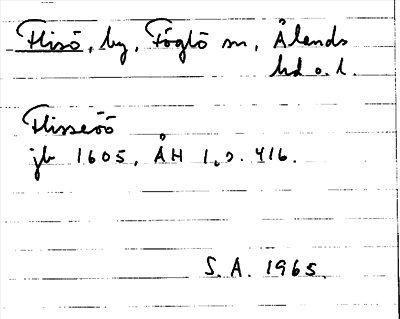 Flisö, by, Föglö sn, Ålands
hd o. l.
Flisseöö
jb 1605, ÅH 1, s. 416.
S. A. 1965.